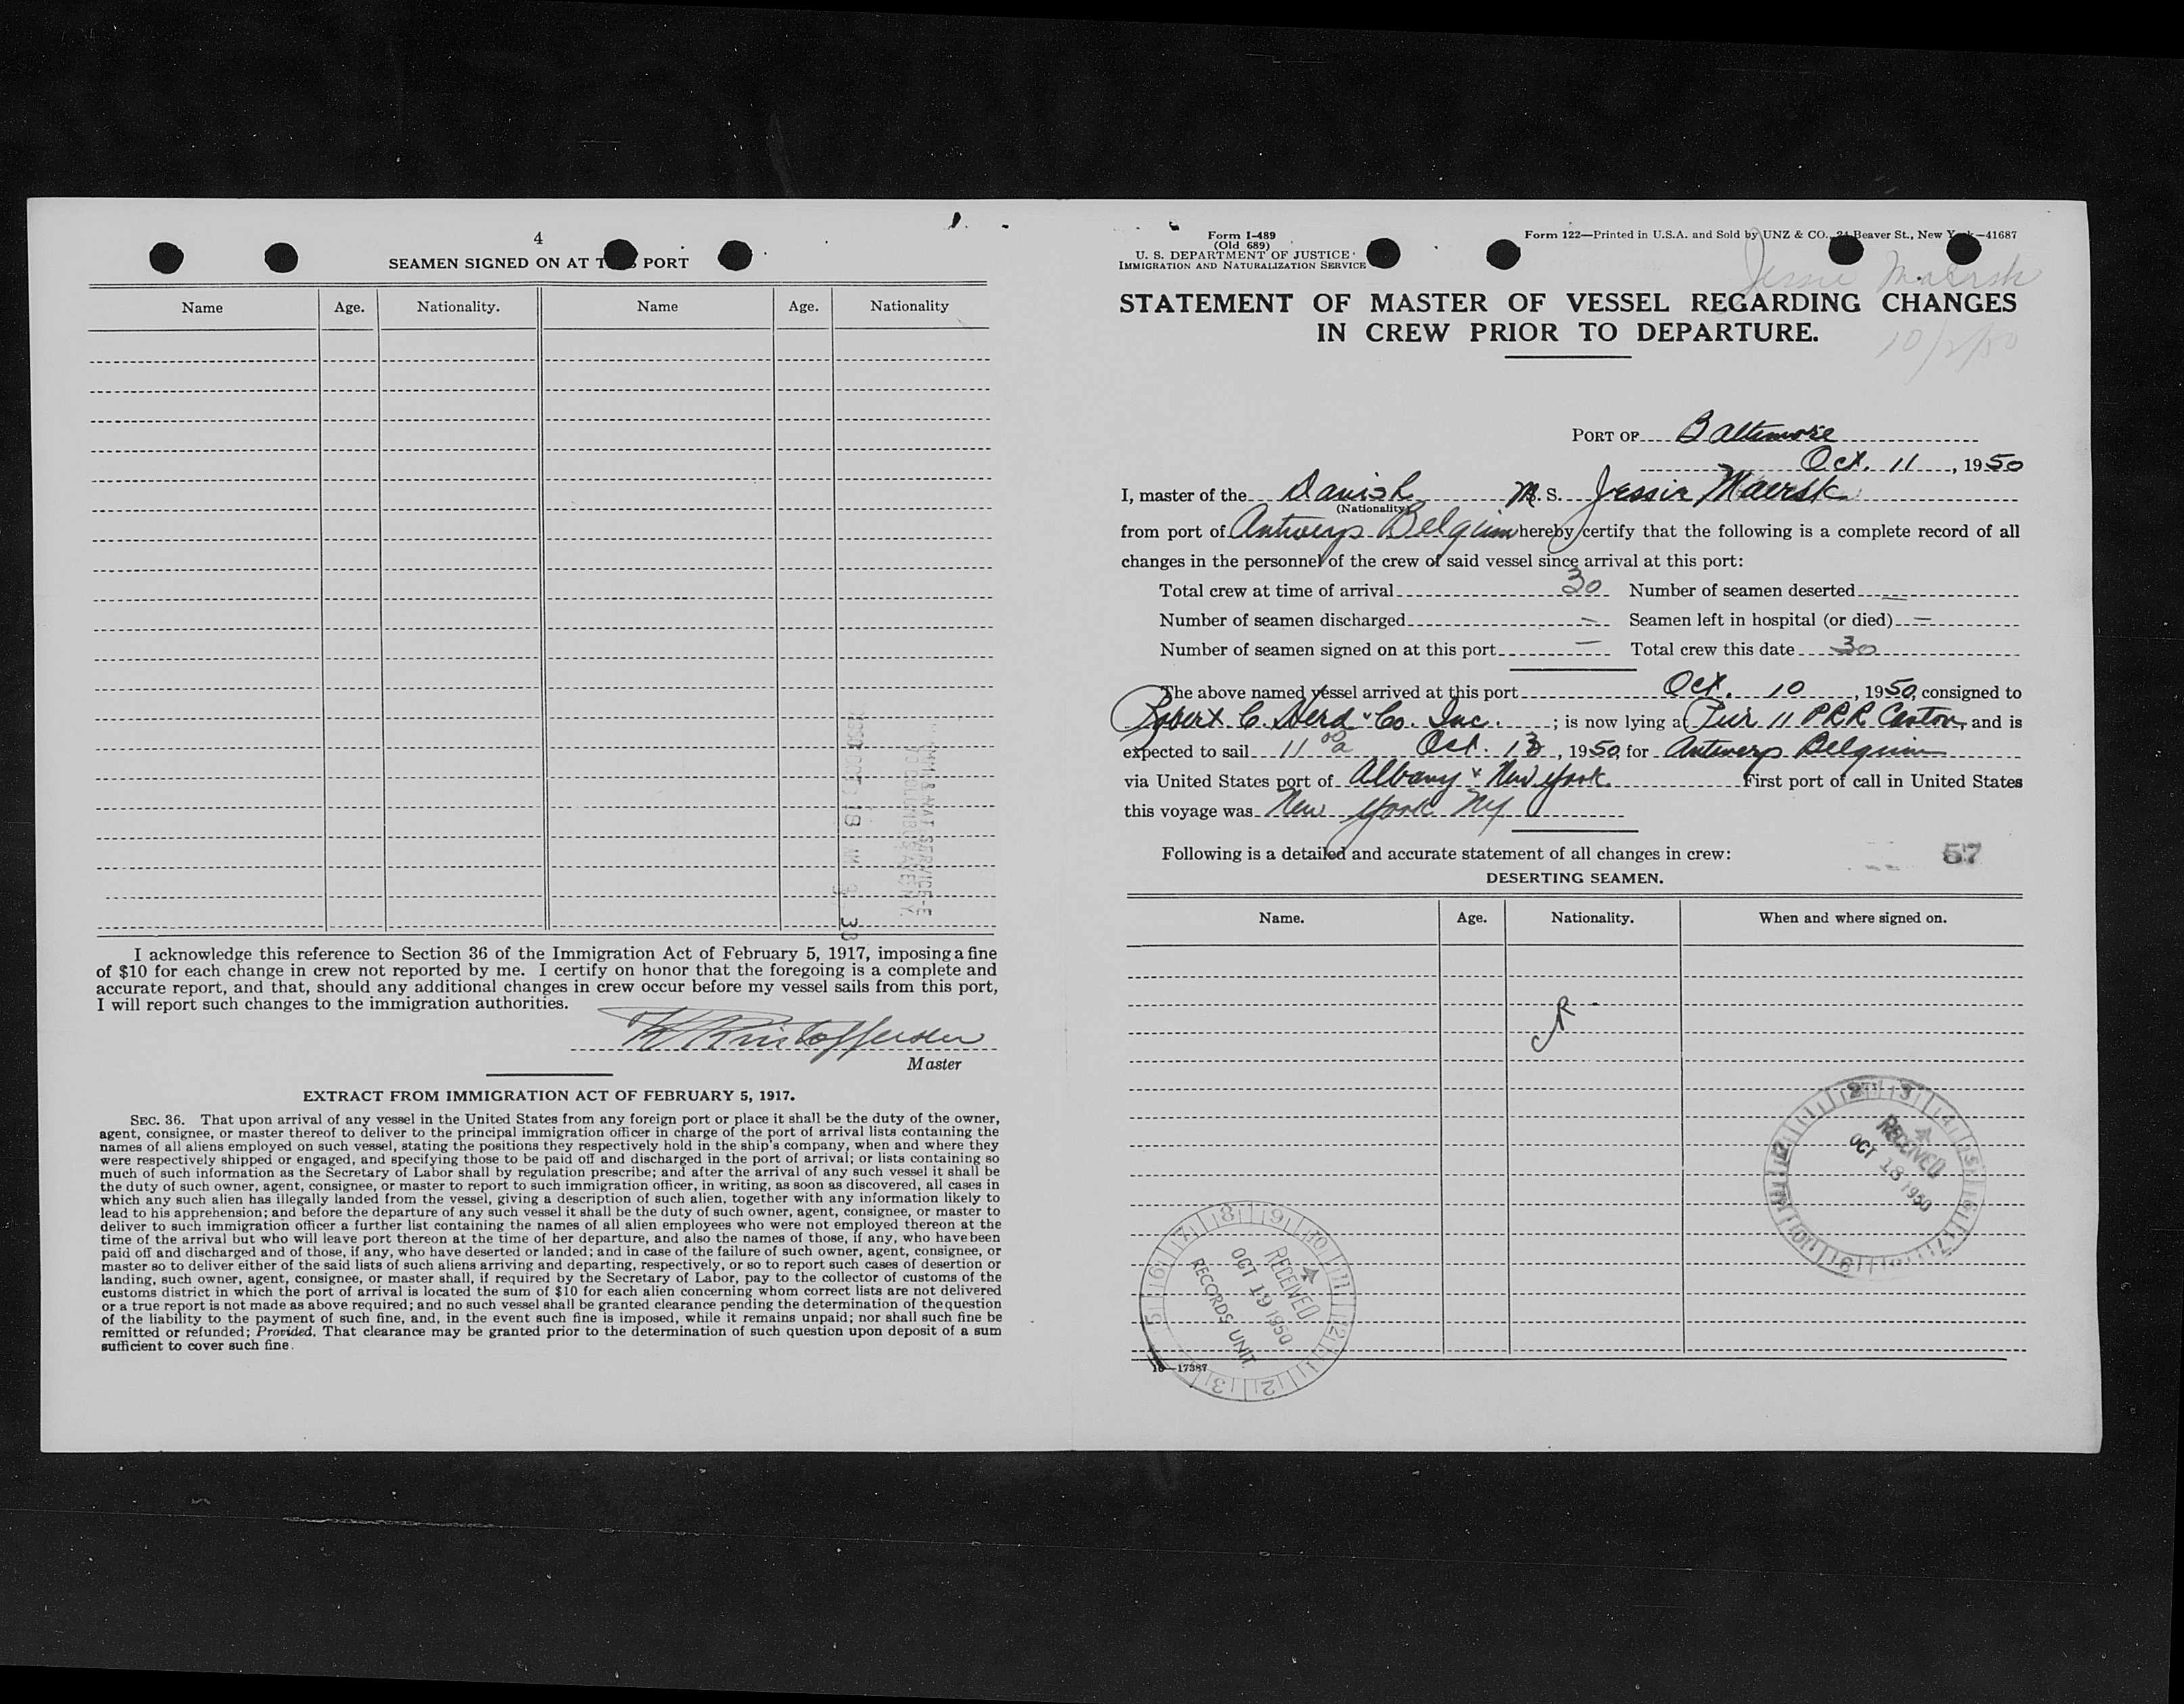 4
SEAMEN SIGNED ON AT T PORT
Name Age. Nationality. Name Age. Nationality
I acknowledge this reference to Section 36 of the Immigration Act of February 5, 1917, imposing a fine
of $10 for each change in crew not reported by me. I certify on honor that the foregoing is a complete and
accurate report, and that, should any additional changes in crew occur before my vessel sails from this port,
I will report such changes to the immigration authorities.
Kristoffersen
Master
EXTRACT FROM IMMIGRATION ACT OF FEBRUARY 5, 1917.
SEC. 36. That upon arrival of any vessel in the United States from any foreign port or place it shall be the duty of the owner,
agent, consignee, or master thereof to deliver to the principal immigration officer in charge of the port of arrival lists containing the
names of all aliens employed on such vessel, stating the positions they respectively hold in the ship's company, when and where they
were respectively shipped or engaged, and specifying those to be paid off and discharged in the port of arrival; or lists containing so
much of such information as the Secretary of Labor shall by regulation prescribe; and after the arrival of any such vessel it shall be
the duty of such owner, agent, consignee, or master to report to such immigration officer, in writing, as soon as discovered, all cases in
which any such alien has illegally landed from the vessel, giving a description of such alien, together with any information likely to
lead to his apprehension; and before the departure of any such vessel it shall be the duty of such owner, agent, consignee, or master to
deliver to such immigration officer a further list containing the names of all alien employees who were not employed thereon at the
time of the arrival but who will leave port thereon at the time of her departure, and also the names of those, if any, who have been
paid off and discharged and of those, if any, who have deserted or landed; and in case of the failure of such owner, agent, consignee, or
master so to deliver either of the said lists of such aliens arriving and departing, respectively, or so to report such cases of desertion or
landing, such owner, agent, consignee, or master shall, if required by the Secretary of Labor, pay to the collector of customs of the
customs district in which the port of arrival is located the sum of $10 for each alien concerning whom correct lists are not delivered
or a true report is not made as above required; and no such vessel shall be granted clearance pending the determination of the question
of the liability to the payment of such fine, and, in the event such fine is imposed, while it remains unpaid; nor shall such fine be
remitted or refunded; Provided, That clearance may be granted prior to the determination of such question upon deposit of a sum
sufficient to cover such fine.
Form I-489
(Old 689)
U. S. DEPARTMENT OF JUSTICE
IMMIGRATION AND NATURALIZATION SERVICE
Form 122—Printed in U.S.A. and Sold by UNZ & CO., 24 Beaver St., New York—41687
Jessie Maersk
STATEMENT OF MASTER OF VESSEL REGARDING CHANGES
IN CREW PRIOR TO DEPARTURE.
10/2/50
PORT OF Baltimore
Oct. 11, 1950
I, master of the Danish M. S. Jessie Maersk
(Nationality)
from port of Antwerp Belgium hereby certify that the following is a complete record of all
changes in the personnel of the crew of said vessel since arrival at this port:
Total crew at time of arrival 30 Number of seamen deserted —
Number of seamen discharged — Seamen left in hospital (or died) —
Number of seamen signed on at this port — Total crew this date 30
The above named vessel arrived at this port Oct. 10, 1950, consigned to
Robert C. Herd & Co. Inc. ; is now lying at Pier 11 PRR Canton, and is
expected to sail 11 00 a Oct. 13, 1950, for Antwerp Belgium
via United States port of Albany & New York First port of call in United States
this voyage was New York NY
Following is a detailed and accurate statement of all changes in crew:
57
DESERTING SEAMEN.
Name. Age. Nationality. When and where signed on.
RECEIVED
OCT 18 1950
RECEIVED
OCT 19 1950
RECORDS UNIT
16—17387